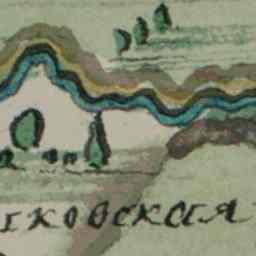 сковская